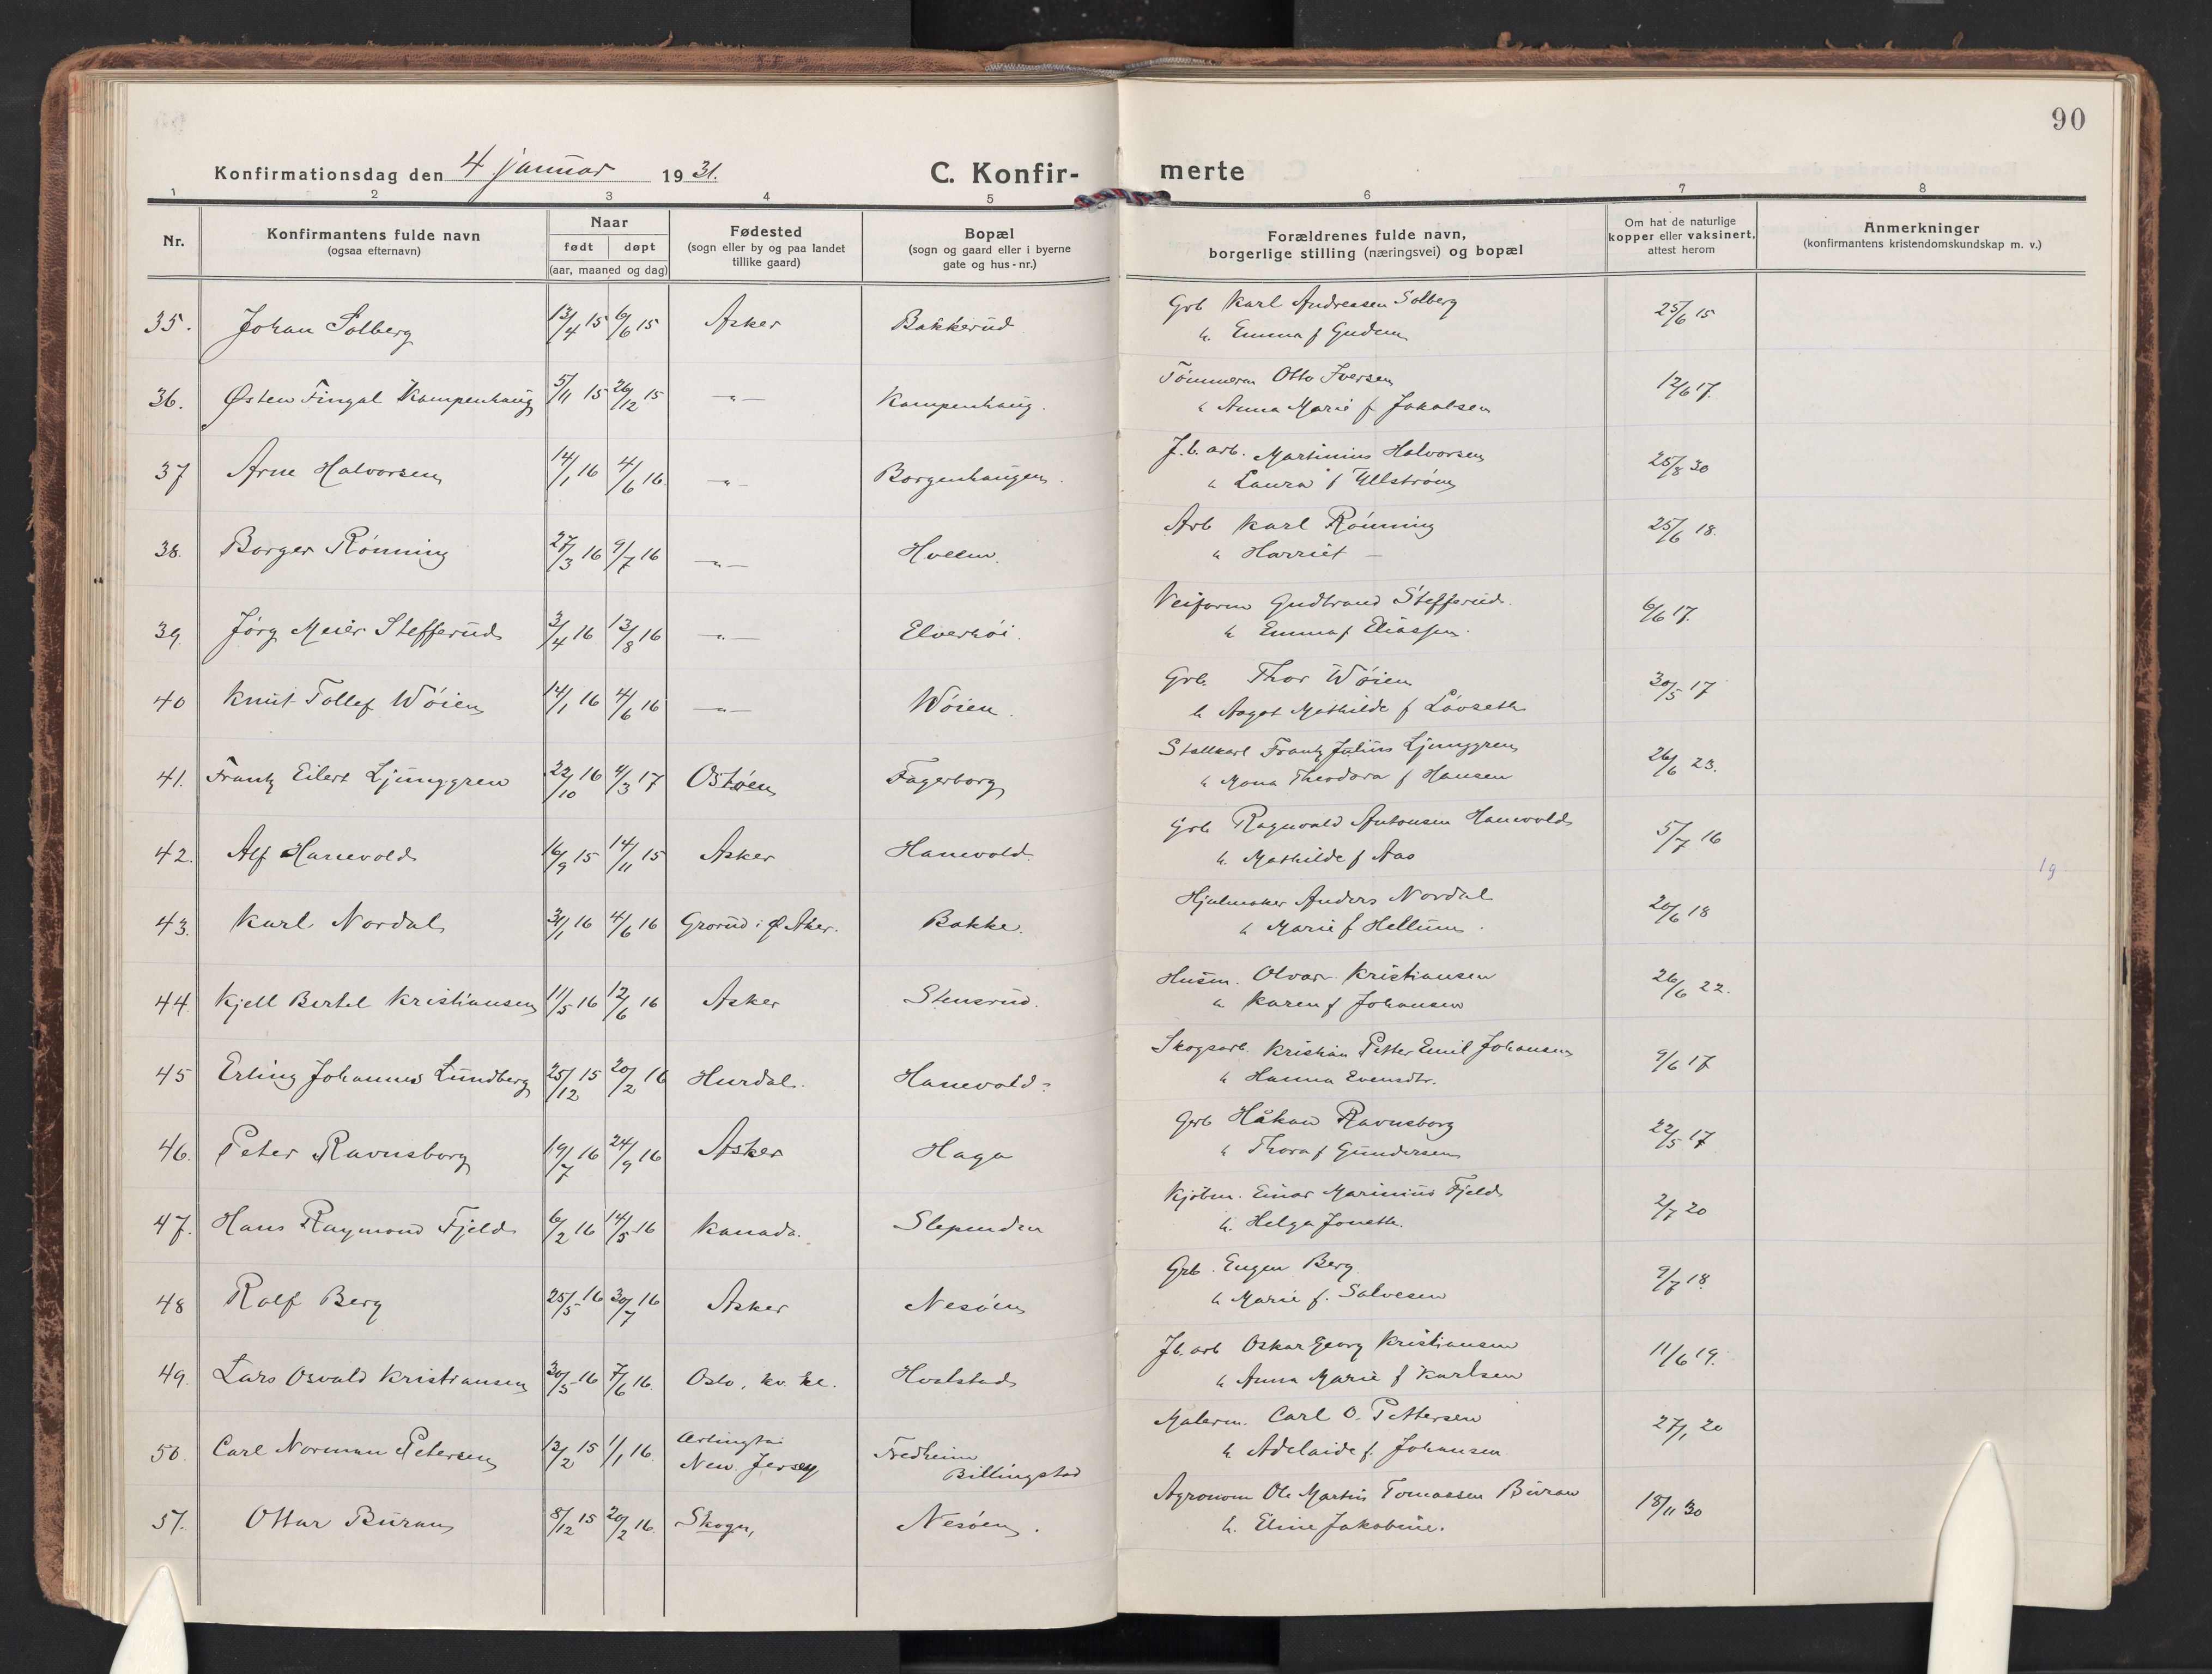 90
Konfirmationsdag den 4 januar 1931.
C. Konfir-
merte
1 2 3 4 5 6 7 8
Nr.
Konfirmantens fulde navn
(ogsaa efternavn)
Naar
født døpt
(aar, maaned og dag)
Fødested
(sogn eller by og paa landet
tillike gaard)
Bopæl
(sogn og gaard eller i byerne
gate og hus-nr.)
Forældrenes fulde navn,
borgerlige stilling (næringsvei) og bopæl
Om hat de naturlige
kopper eller vaksinert,
attest herom
Anmerkninger
(konfirmantens kristendomskundskap m. v.)
35. Johan Solberg 13/4 15 6/6 15 Asker Bakkerud Grb Karl Andreasen Solberg 25/6 15
h. Emma f Gudem
36. Østen Fingal Kampenhaug 5/11 15 26/12 15 —"— Kampenhaug. Tømmerm Otto Iversen 12/6 17.
" Anna Marie f Jakobsen
37 Arne Halvorsen 14/1 16 4/6 16. —"— Borgenhaugen. J.b. arb. Martinius Halvorsen 25/8 30
" Laura f Ullstrøm
38. Borger Rönning 27/3 16 9/7 16 —"— Hvelm. Arb Karl Rönning 25/6 18.
" Harriet —
39. Jörg Meier Stefferud 3/4 16 13/8 16 —"— Elverhöi. Veiform Gudbrand Stefferud. 6/6 17.
h Emma f Eliassen.
40 Knut Tollef Wöien 14/1 16 4/6 16 —"— Wöien. Grb. Thor Wöien 30/5 17
h Aagot Mathilde f Lövseth
41. Frantz Eilert Ljunggren 22/10 16 4/3 17 Ostøen Fagerborg Stallkarl Frantz Julius Ljunggren 26/6 23.
h Mona Theodora f Hansen
42. Alf Hanevold 16/9 15 14/11 15 Asker Hanevold. Grb Ragnvald Antonsen Hanevold 5/7 16
h. Mathilde f Aas
19
43. Karl Nordal 31/1 16 4/6 16 Grorud i Ø. Aker. Bakke. Hjulmaker Anders Nordal 20/6 18
h Marie f Hellum.
44. Kjell Bertel Kristiansen 11/5 16 12/6 16 Asker Stensrud. Husm. Olvar Kristiansen 26/6 22.
h Karen f Johansen
45 Erling Johannes Lundberg 25/12 15 20/2 16 Hurdal. Hanevold. Skogsarb. Kristian Petter Emil Johansen 9/6 17
h Hanna Evensdtr.
46. Peter Ravnsborg 19/7 16 24/9 16 Asker Haga Grb Håkon Ravnsborg 22/5 17
h Thora f Gundersen
47. Hans Raymond Fjeld 6/2 16 14/5 16 Kanada. Slependen Kjöbm. Einar Marinius Fjeld 2/7 20
h. Helga Joneth.
48 Rolf Berg 25/5 16 30/7 16 Asker Nesöen Grb. Eugen Berg. 9/7 18.
h Marie f. Salvesen
49. Lars Osvald Kristiansen 30/5 16 7/6 16. Oslo, kv. kl. Hvalstad Jb. arb Oskar Georg Kristiansen 11/6 19.
h Anna Marie f Karlsen
50. Carl Norman Petersen 13/2 15 1/1 16. Arlington New Jersey Fredheim Billingstad Malerm. Carl O. Pettersen 27/1 20
h Adelaide f. Johansen
51. Ottar Buran 8/12 15 20/2 16. Skogn, Nesöen. Agronom Ole Martin Tomassen Buran 18/11 30
h. Eline Jakobine.